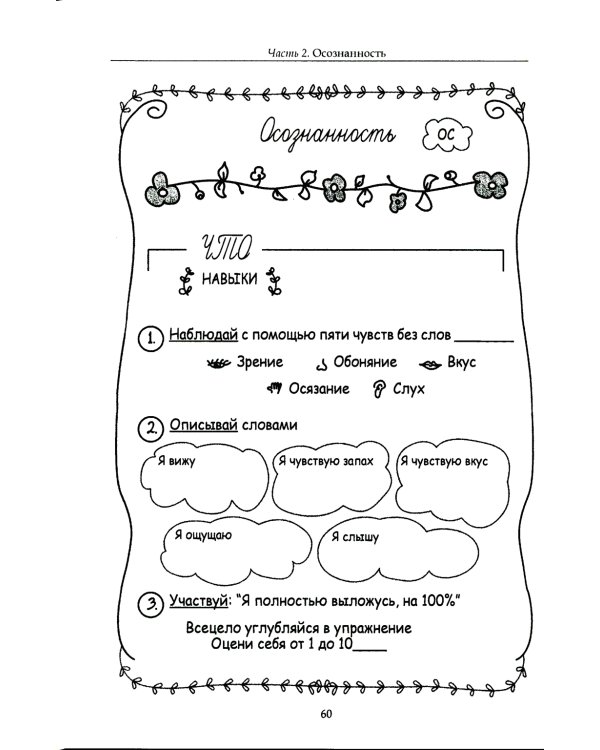 Часть 2. Осознанность
Осознанность ОС
ЧТО
НАВЫКИ
1. Наблюдай с помощью пяти чувств без слов
Зрение Обоняние Вкус
Осязание Слух
2. Описывай словами
Я вижу Я чувствую запах Я чувствую вкус
Я ощущаю Я слышу
3. Участвуй: "Я полностью выложусь, на 100%"
Всецело углубляйся в упражнение
Оцени себя от 1 до 10____
60